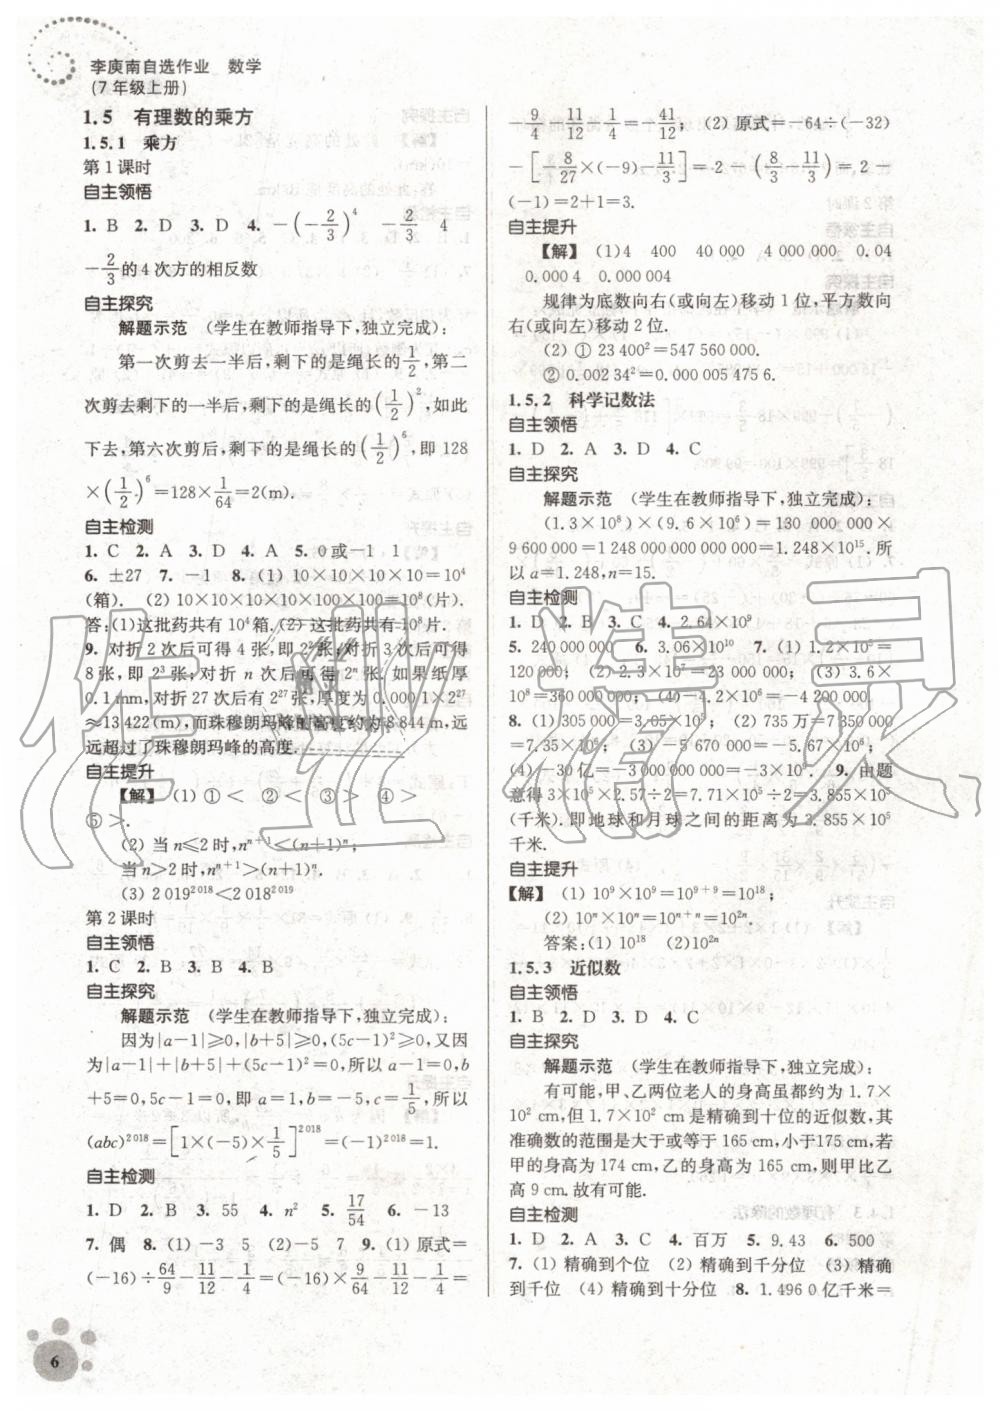 李庾南自选作业 数学
(7年级上册)
1.5 有理数的乘方
1.5.1 乘方
第1课时
自主领悟
1. B 2. D 3. D 4. -(-2/3)^4 -2/3 4
-2/3的4次方的相反数
自主探究
解题示范 (学生在教师指导下,独立完成):
第一次剪去一半后,剩下的是绳长的1/2,第二
次剪去剩下的一半后,剩下的是绳长的(1/2)^2,如此
下去,第六次剪后,剩下的是绳长的(1/2)^6,即128
×(1/2)^6=128×1/64=2(m).
自主检测
1. C 2. A 3. D 4. A 5. 0或-1 1
6. ±27 7. -1 8. (1) 10×10×10×10=10^4
(箱). (2) 10×10×10×10×100×100=10^8(片).
答:(1)这批药共有10^4箱.(2)这批药共有10^8片.
9. 对折2次后可得4张,即2^2张;对折3次后可得
8张,即2^3张;对折n次后可得2^n张. 如果纸厚
0.1 mm,对折27次后有2^27张,厚度为0.000 1×2^27
≈13 422(m),而珠穆朗玛峰的高度约为8 844 m,远
远超过了珠穆朗玛峰的高度.
自主提升
【解】 (1) ①< ②< ③> ④>
⑤>.
(2) 当n≤2时,n^(n+1)<(n+1)^n;
当n>2时,n^(n+1)>(n+1)^n.
(3) 2 019^2 018<2 018^2 019
第2课时
自主领悟
1. C 2. B 3. B 4. B
自主探究
解题示范 (学生在教师指导下,独立完成):
因为|a-1|≥0,|b+5|≥0,(5c-1)^2≥0,又因
为|a-1|+|b+5|+(5c-1)^2=0,所以a-1=0,b
+5=0,5c-1=0,即a=1,b=-5,c=1/5,所以
(abc)^2 018=[1×(-5)×1/5]^2 018=(-1)^2 018=1.
自主检测
1. D 2. B 3. 55 4. n^2 5. 17/54 6. -13
7. 偶 8. (1) -3 5 (2) -5 7 9. (1) 原式=
(-16)÷64/9-11/12-1/4=(-16)×9/64-11/12-1/4=
-9/4-11/12-1/4=-41/12; (2) 原式=-64÷(-32)
-[-8/27×(-9)-11/3]=2-(8/3-11/3)=2-
(-1)=2+1=3.
自主提升
【解】 (1)4 400 40 000 4 000 000 0.04
0.000 4 0.000 004
规律为底数向右(或向左)移动1位,平方数向
右(或向左)移动2位.
(2) ① 23 400^2=547 560 000.
② 0.002 34^2=0.000 005 475 6.
1.5.2 科学记数法
自主领悟
1. D 2. A 3. D 4. C
自主探究
解题示范 (学生在教师指导下,独立完成):
(1.3×10^8)×(9.6×10^6)=130 000 000×
9 600 000=1 248 000 000 000 000=1.248×10^15. 所
以a=1.248,n=15.
自主检测
1. D 2. B 3. C 4. 2.64×10^9
5. 240 000 000 6. 3.06×10^10 7. (1) 1.2×10^5=
120 000; (2) -1.02×10^4=-10 200; (3) 3.6×
10^8=360 000 000; (4) -4.2×10^6=-4 200 000
8. (1) 305 000=3.05×10^5; (2) 735万=7 350 000
=7.35×10^6; (3) -5 670 000=-5.67×10^6;
(4)-30亿=-3 000 000 000=-3×10^9. 9. 由题
意得3×10^5×2.57÷2=7.71×10^5÷2=3.855×10^5
(千米). 即地球和月球之间的距离为3.855×10^5
千米.
自主提升
【解】 (1) 10^9×10^9=10^(9+9)=10^18;
(2) 10^n×10^n=10^(n+n)=10^2n.
答案:(1) 10^18 (2)10^2n
1.5.3 近似数
自主领悟
1. B 2. D 3. D 4. C
自主探究
解题示范 (学生在教师指导下,独立完成):
有可能,甲、乙两位老人的身高虽都约为1.7×
10^2 cm,但1.7×10^2 cm是精确到十位的近似数,其
准确数的范围是大于或等于165 cm,小于175 cm,若
甲的身高为174 cm,乙的身高为165 cm,则甲比乙
高9 cm. 故有可能.
自主检测
1. D 2. A 3. C 4. 百万 5. 9.43 6. 500
7. (1) 精确到个位 (2) 精确到千分位 (3) 精确
到千位 (4) 精确到十分位 8. 1.496 0亿千米=
6
作业精灵